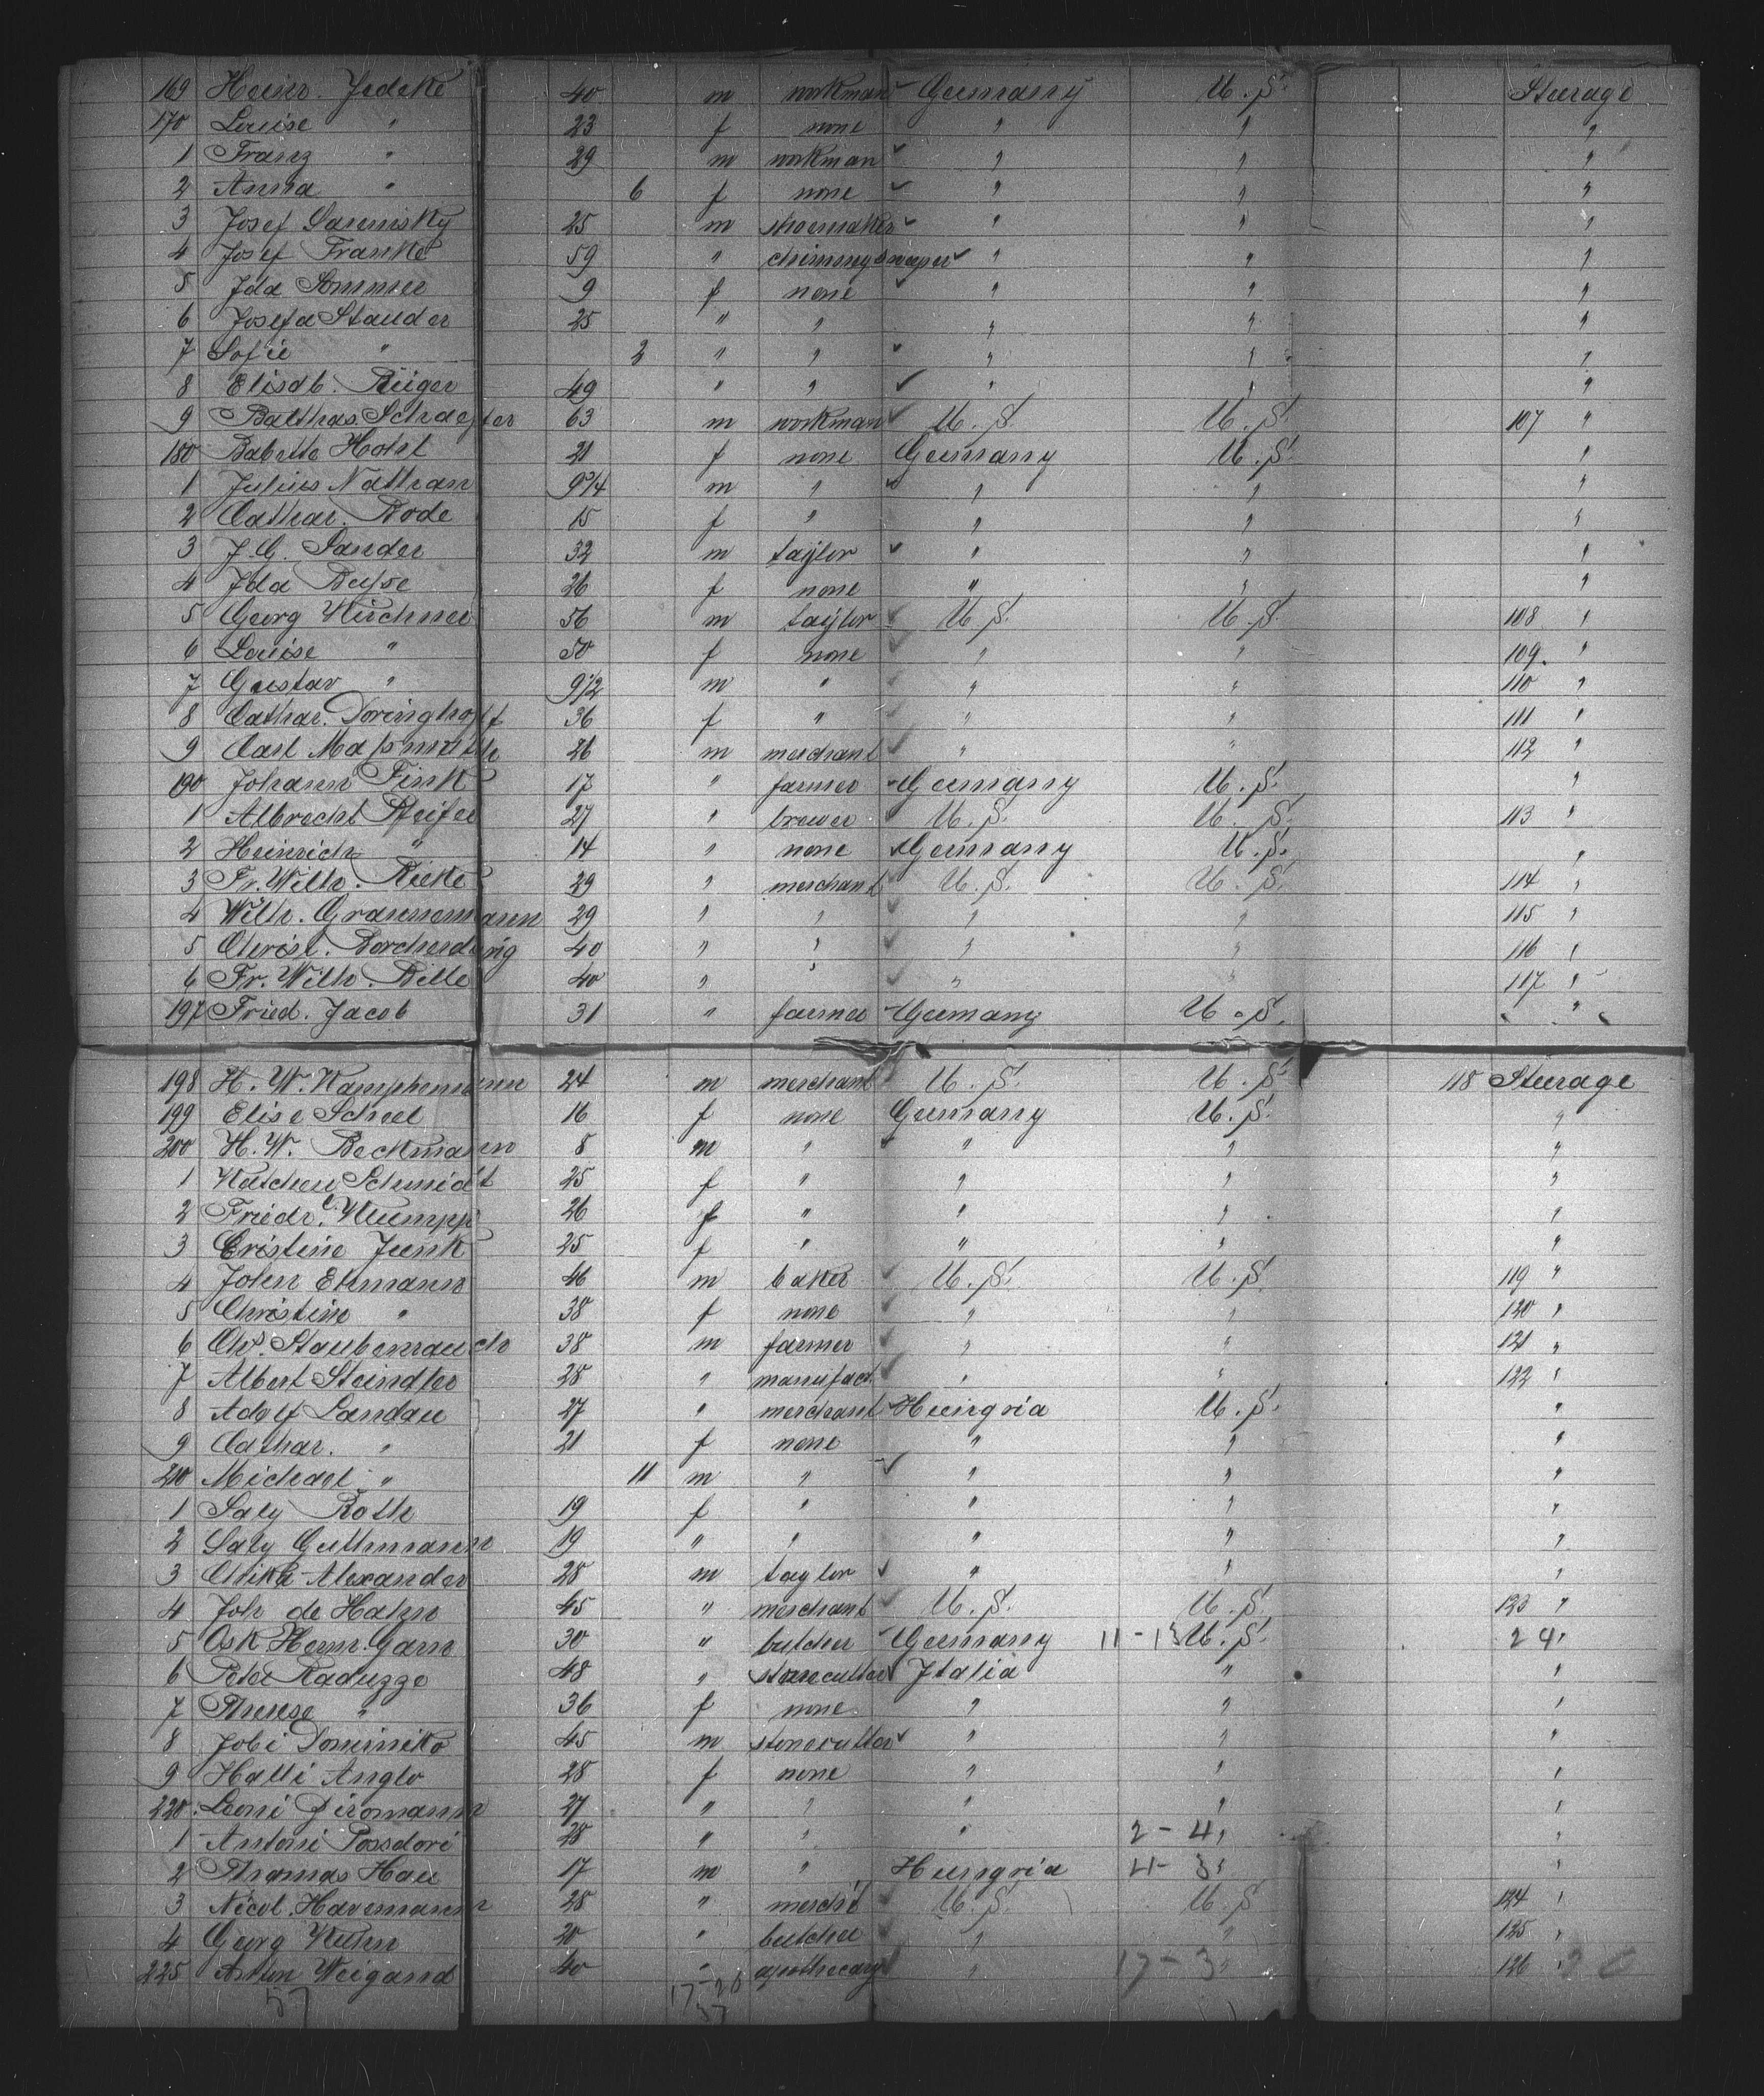 169 Heinr. Jedeke 40 m workman Germany U.S. Steerage
170 Louise " 23 f none " " "
1 Franz " 29 m workman " " "
2 Anna " 6 f none " " "
3 Josef 25 m shoemaker " " "
4 Josef Franke 59 " " " "
5 Ida Sommer 9 f none " " "
6 Josefa Stauder 25 " " " " "
7 Sofie " 2 " " " " "
8 Elisab. Rüger 49 " " " " "
9 Balthas. Schaefer 63 m workman U.S. U.S. 107 "
180 Babette 21 f none Germany U.S. "
1 Julius Nathan 9 3/4 m " " " "
2 Cathar. Rode 15 f " " " "
3 J.C. Sander 32 m taylor " " "
4 Ida 26 f none " " "
5 Georg Kirchner 56 m taylor U.S. U.S. 108 "
6 Louise " 50 f none " " 109 "
7 Gustav " 9 1/2 m " " " 110 "
8 Cathar. Doringhoff 36 f " " " 111 "
9 Carl 26 m merchant " " 112 "
190 Johann Fink 17 " farmer Germany U.S. "
1 Albrecht Pfeifer 27 " brewer U.S. U.S. 113 "
2 Heinrich " 14 " none Germany U.S. "
3 Fr. Wilh. Rieke 29 " merchant U.S. U.S. 114 "
4 Wilh. Grannemann 29 " " " " 115 "
5 Christ. Borcherding 40 " " " " 116 "
6 Fr. Wilh. Bille 40 " " " " 117 "
197 Fried. Jacob 31 " farmer Germany U.S. "
198 H. W. Kamphemann 24 m merchant U.S. U.S. 118 Steerage
199 Elise Scheel 16 f none Germany U.S. "
200 H. W. Beckmann 8 m " " " "
1 Katchen Schmidt 25 f " " " "
2 Friedr. Klumpp 26 f " " " "
3 Cristine Junk 25 f " " " "
4 John Ehmann 46 m baker U.S. U.S. 119 "
5 Christine " 38 f none " " 120 "
6 Chr. Staubenrauch 38 m farmer " " 121 "
7 Albert Steindler 28 " manufact. " " 122 "
8 Adolf Landau 27 " merchant Hungria U.S. "
9 Cathar. " 21 f none " " "
210 Michael " 11 m " " " "
1 Saly Roth 19 f " " " "
2 Saly Guttmann 19 " " " " "
3 Alexander 28 m taylor " " "
4 Joh de Hahn 45 " merchant U.S. U.S. 123 "
5 Osk Herm. Garn 30 " butcher Germany 11-13 U.S. 24 "
6 Peter Raduzze 48 " stonecutter Italia " "
7 Therese " 36 f none " " "
8 Jobi Dominiko 45 m stonecutter " " "
9 Halli Anglo 28 f none " " "
220 Leoni 27 " " " " "
1 Antoni Possdori 28 " " " 2-4 " "
2 Thomas Hau 17 m " Hungria 4-3 " "
3 Nicol. Havemann 28 " mercht U.S. U.S. 124 "
4 Georg Kuhn 20 " butcher " " 125 "
225 Anton Weigand 40 " apothecary " 17-3 " 126 " 20
57 17-20
37